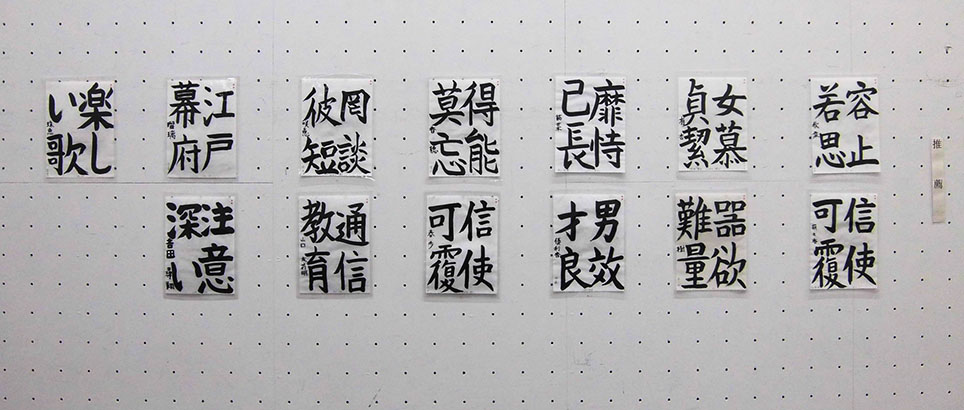 推薦
容止
若思
女慕
貞絜
靡恃
己長
得能
莫忘
罔談
彼短
江戸
幕府
楽し
い歌
信使
可覆
器欲
難量
男效
才良
信使
可覆
通信
教育
注意
深い
吉田